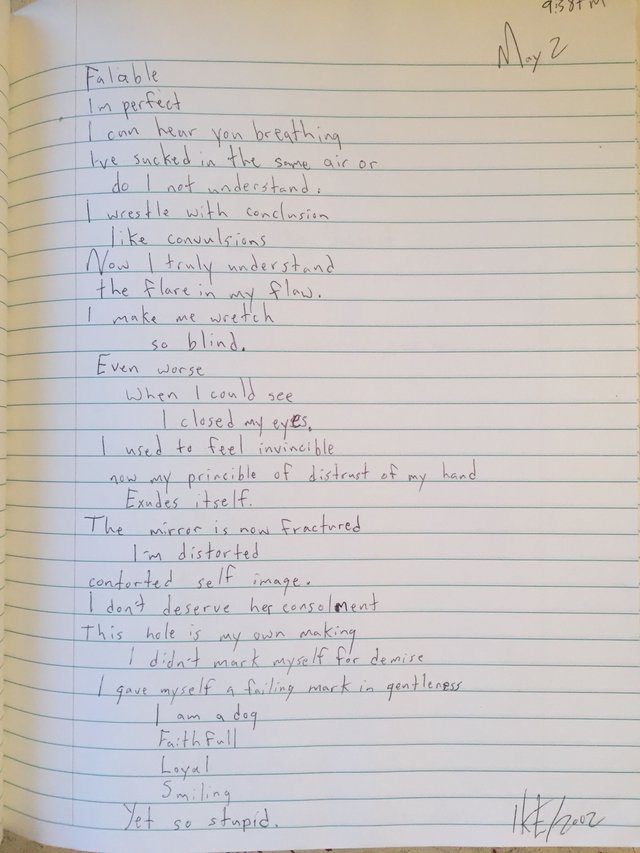 9:38PM
May 2
Falable
Im perfect
I can hear you breathing
I've sucked in the same air or
do I not understand.
I wrestle with conclusion
like convulsions
Now I truly understand
the flare in my flaw.
I make me wretch
so blind.
Even worse
When I could see
I closed my eyes.
I used to feel invincible
now my princible of distrust of my hand
Exudes itself.
The mirror is now fractured
I'm distorted
contorted self image.
I don't deserve her consolment
This hole is my own making
I didn't mark myself for demise
I gave myself a failing mark in gentleness
I am a dog
Faithfull
Loyal
Smiling
Yet so stupid.
IKE/2002